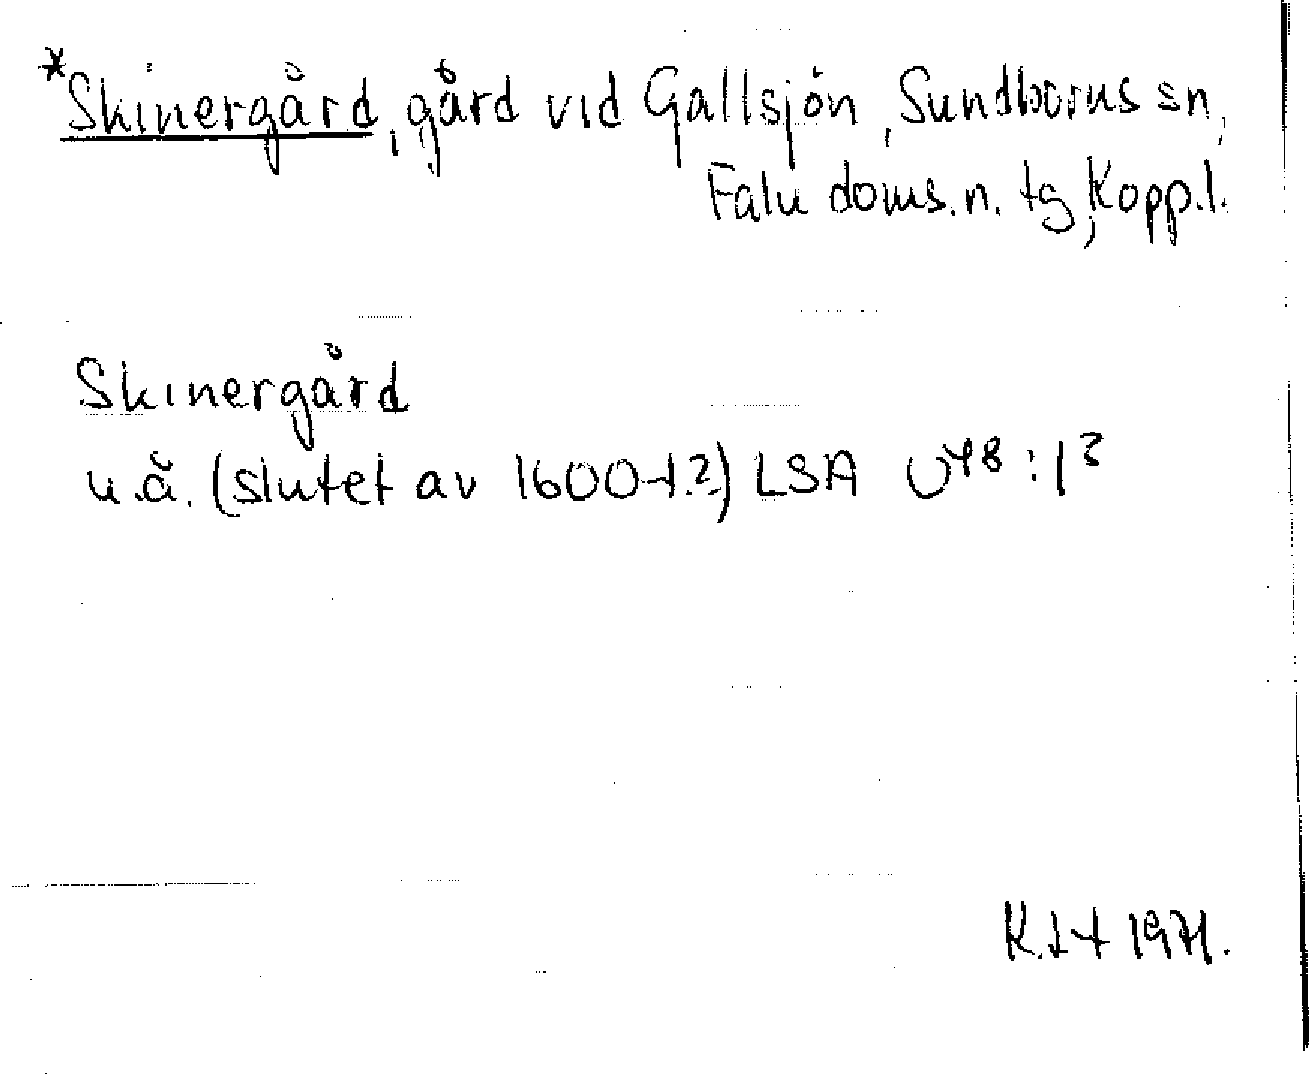 *Skinergård, gård vid Gallsjön, Sundborns sn,
Falu doms.n. tg, Kopp.l.
Skinergård
u.å. (slutet av 1600-t.?) LSA U48:13
1971.